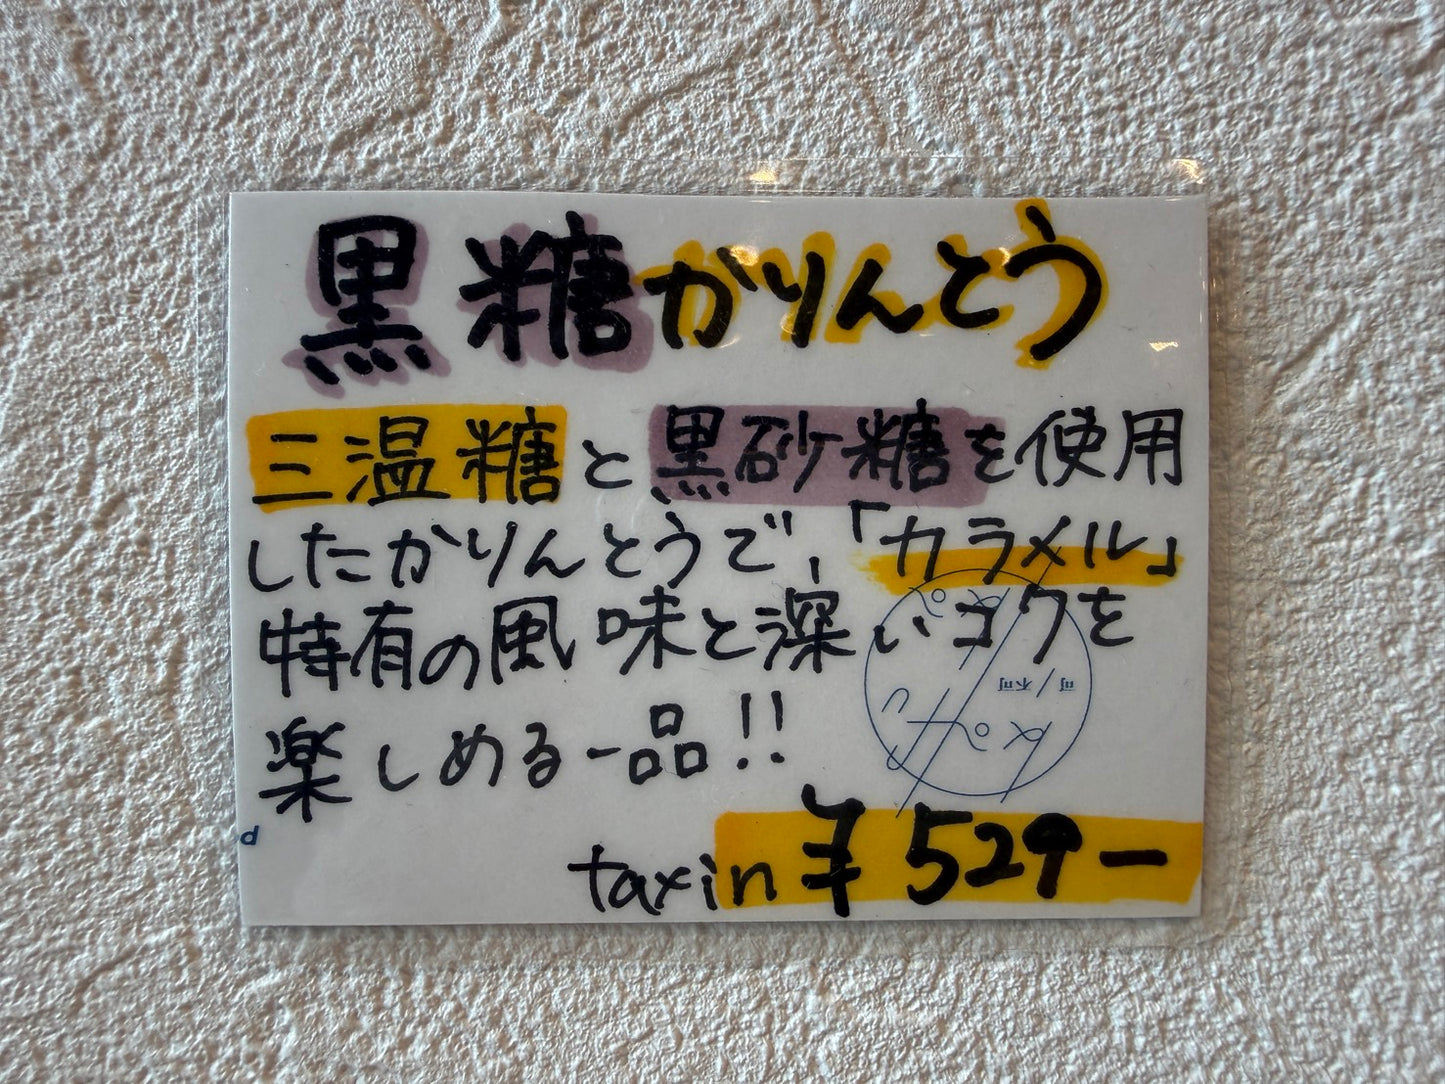 黒糖かりんとう
三温糖と黒砂糖を使用
したかりんとうで、「カラメル」
特有の風味と深いコクを
楽しめる一品!!
taxin ¥529ー